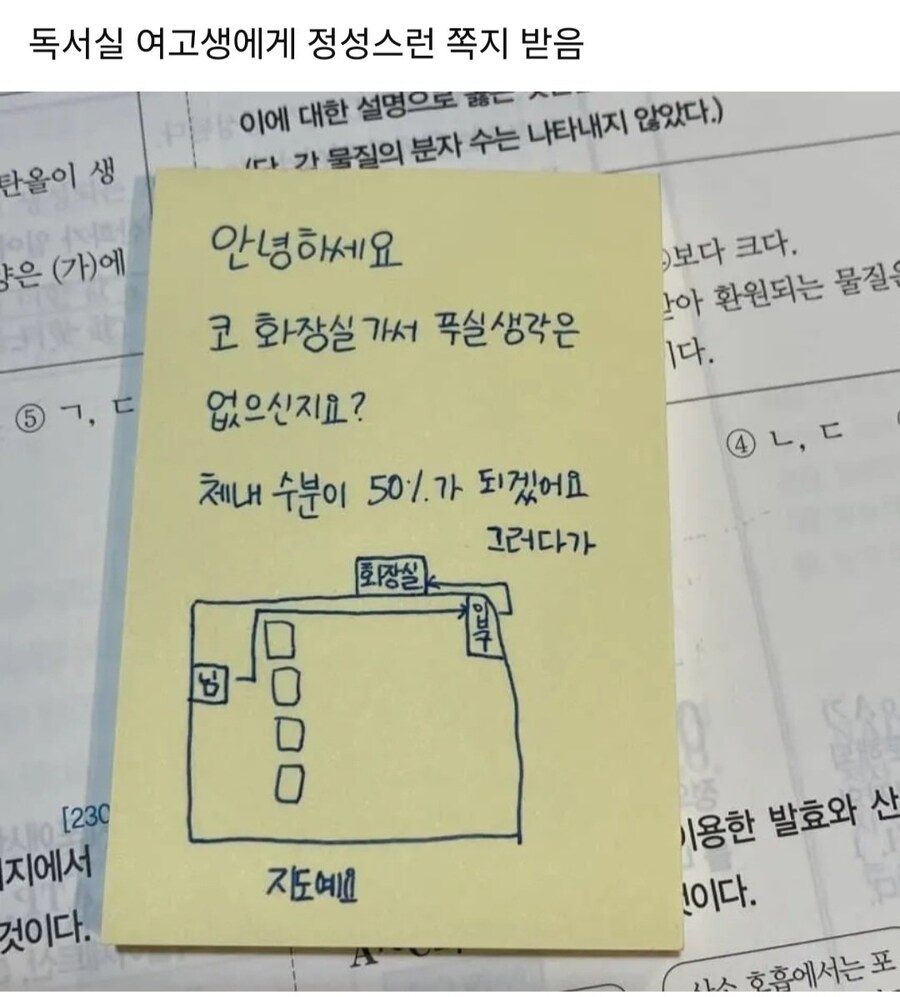 독서실 여고생에게 정성스런 쪽지 받음
이에 대한 설명으로 옳은
(단, 각 물질의 분자 수는 나타내지 않았다.)
탄올이 생
량은 (가)에
보다 크다.
받아 환원되는 물질은
이다.
⑤ ㄱ, ㄷ
④ ㄴ, ㄷ
안녕하세요
코 화장실가서 푹실생각은
없으신지요?
체내 수분이 50%가 되겠어요
그러다가
화장실
입구
님
지도예요
[230
지에서
것이다.
이용한 발효와 산
것이다.
산소 호흡에서는 포